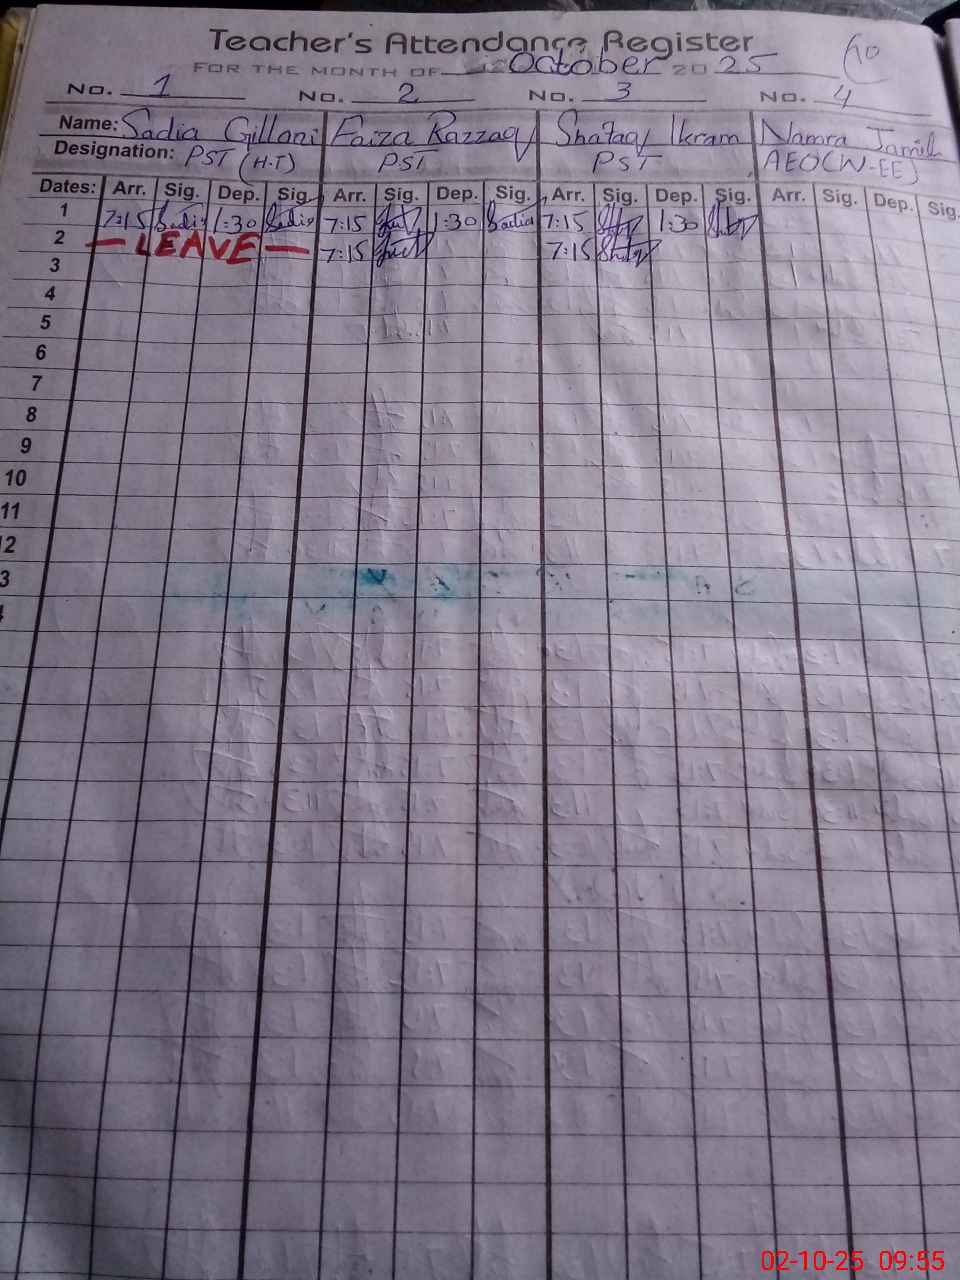 Teacher's Attendance Register
FOR THE MONTH OF October 2025
10
No. 1 No. 2 No. 3 No. 4
Name: Sadia Gillani Faiza Razzaq Shafaq Ikram Namra Jamil
Designation: PST (H-T) PST PST AEO(W-EE)
Dates: Arr. Sig. Dep. Sig. Arr. Sig. Dep. Sig. Arr. Sig. Dep. Sig. Arr. Sig. Dep. Sig.
1 7:15 Sadia 1:30 Sadia 7:15 1:30 Sadia 7:15 1:30
2 — LEAVE — 7:15 7:15
3
4
5
6
7
8
9
10
11
12
3
02-10-25 09:55